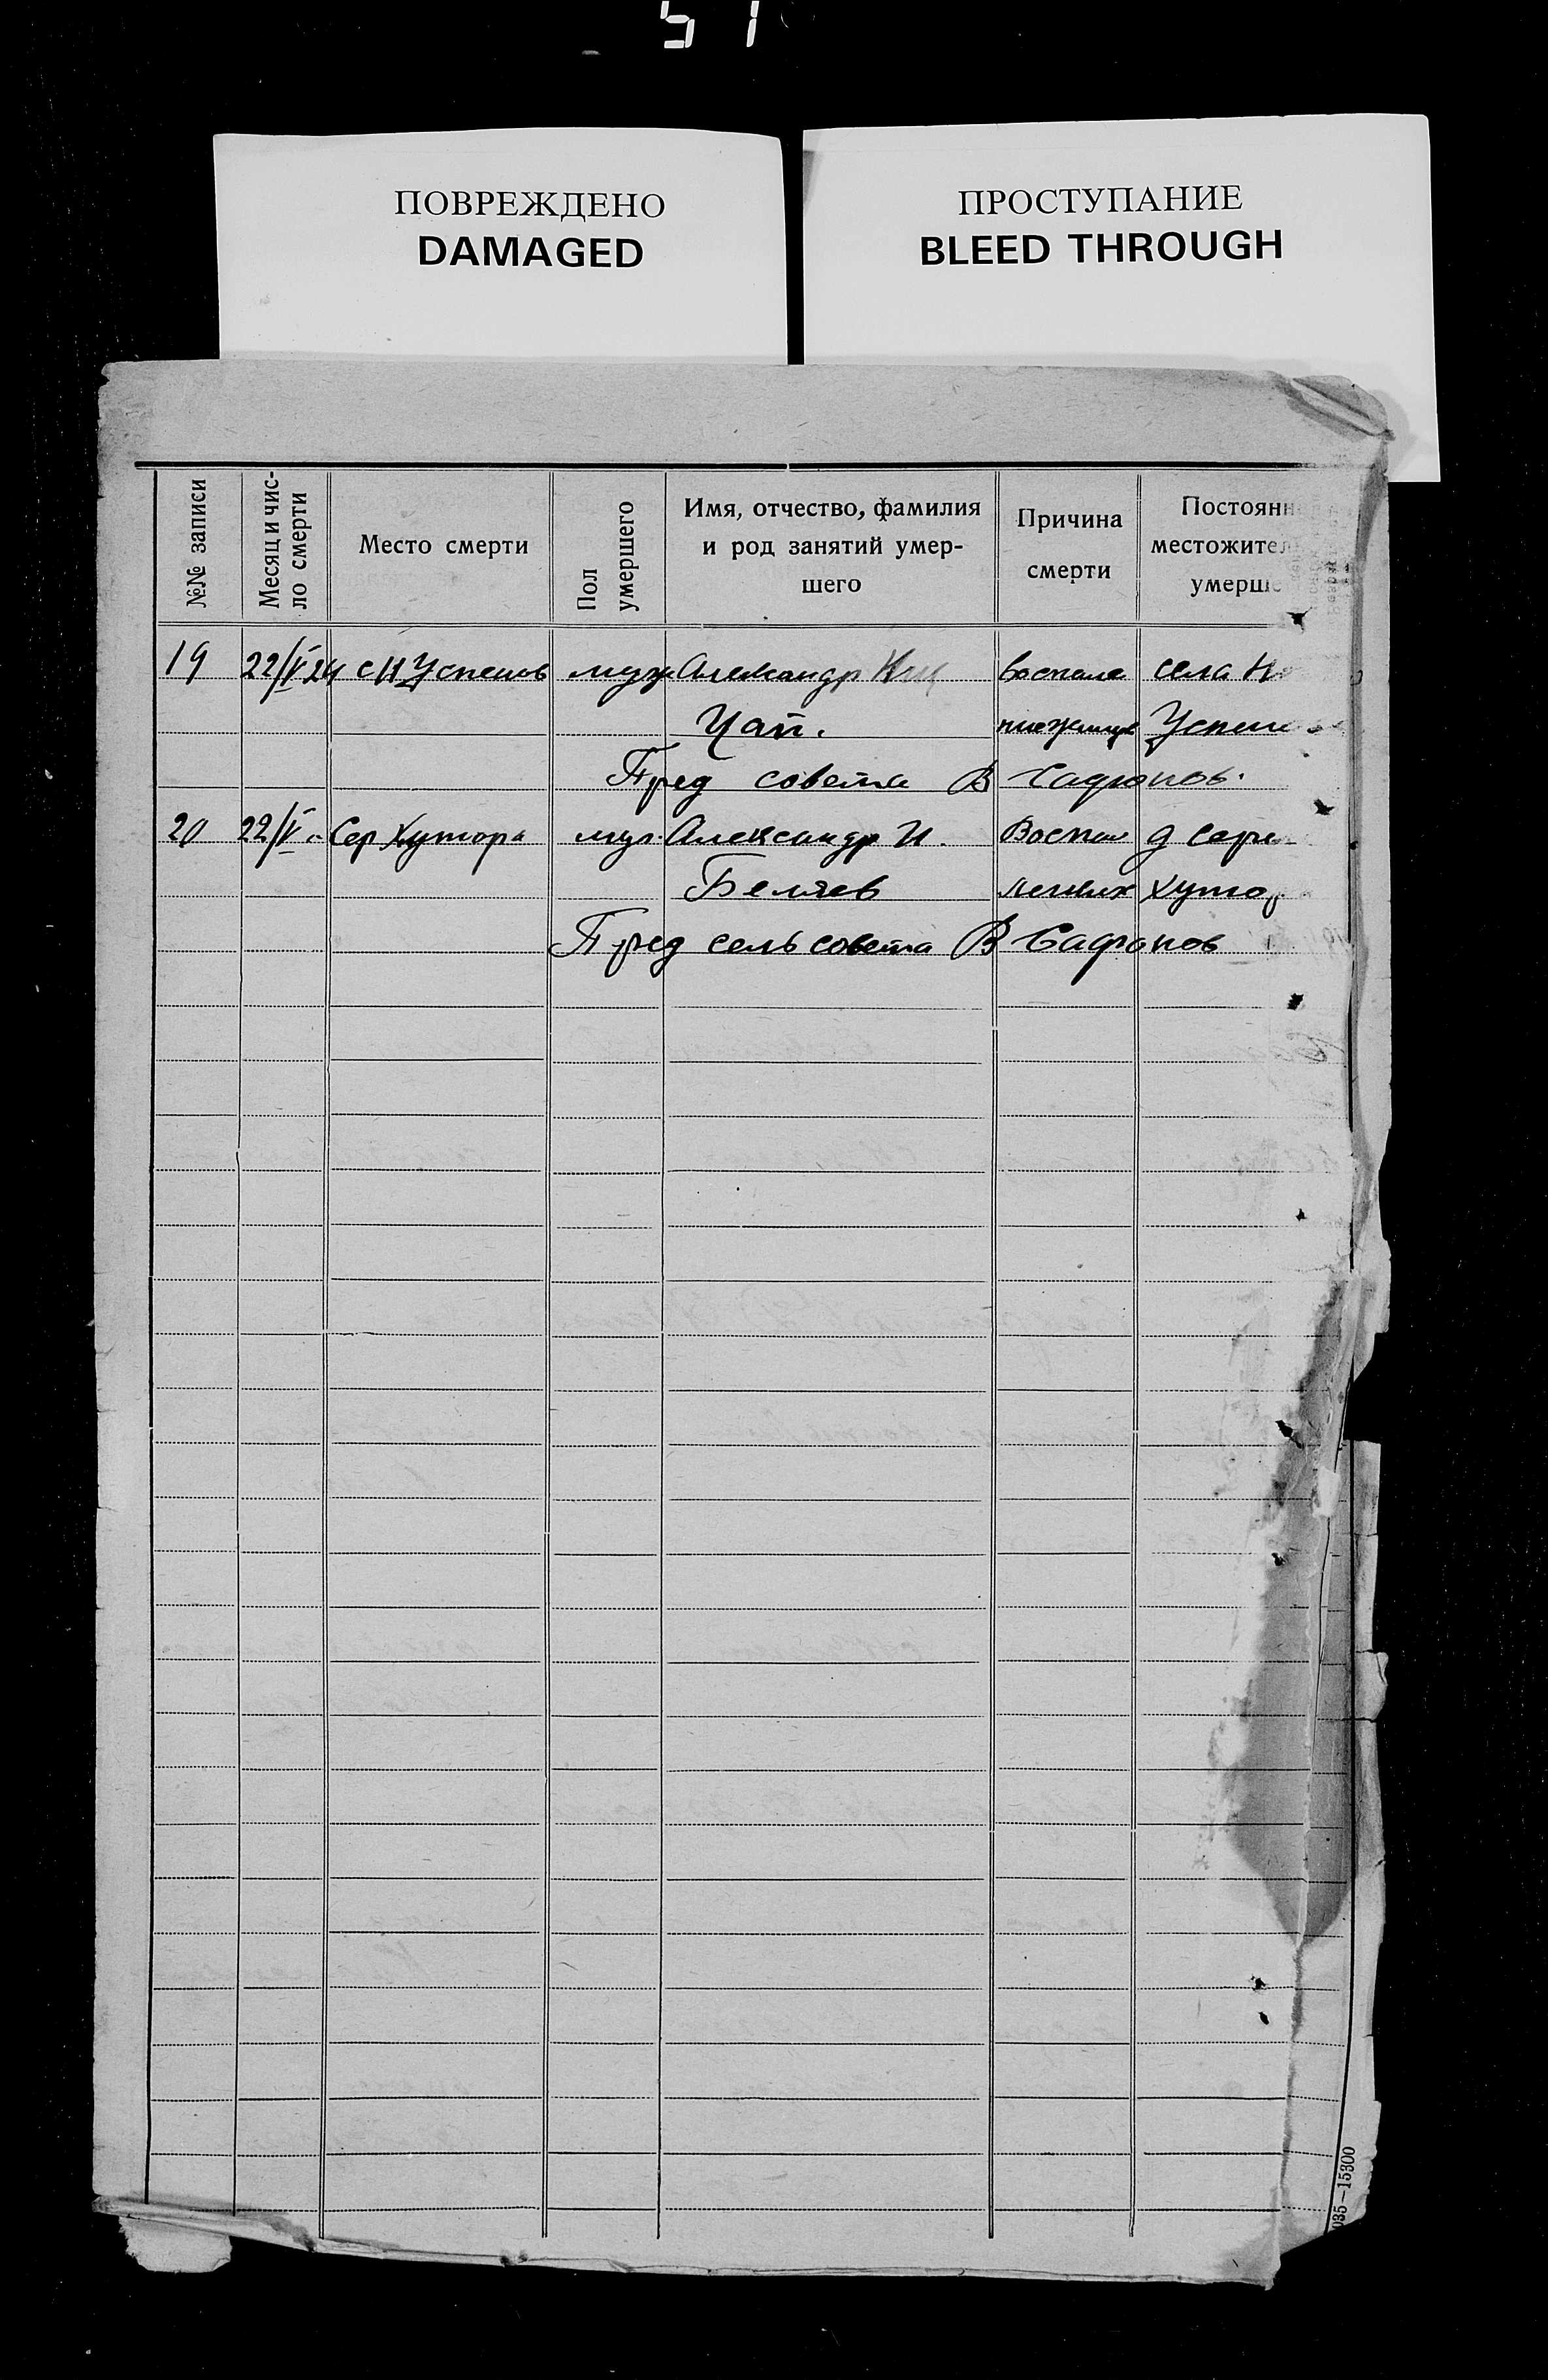 51
ПОВРЕЖДЕНО
DAMAGED
ПРОСТУПАНИЕ
BLEED THROUGH
№№ записи
Месяц и чис-
ло смерти
Место смерти
Пол
умершего
Имя, отчество, фамилия
и род занятий умер-
шего
Причина
смерти
Постоянн
местожител
умерше
19 22/V 24 с Н Успенов муж Александр Воспале села Но
Цап.
Успен
Пред совета В Сафронов.
20 22/V Сер Хутора муж. Александр И. Воспал д Сери
Беляев легких хутор
Пред сельсовета В Сафронов
035—15300